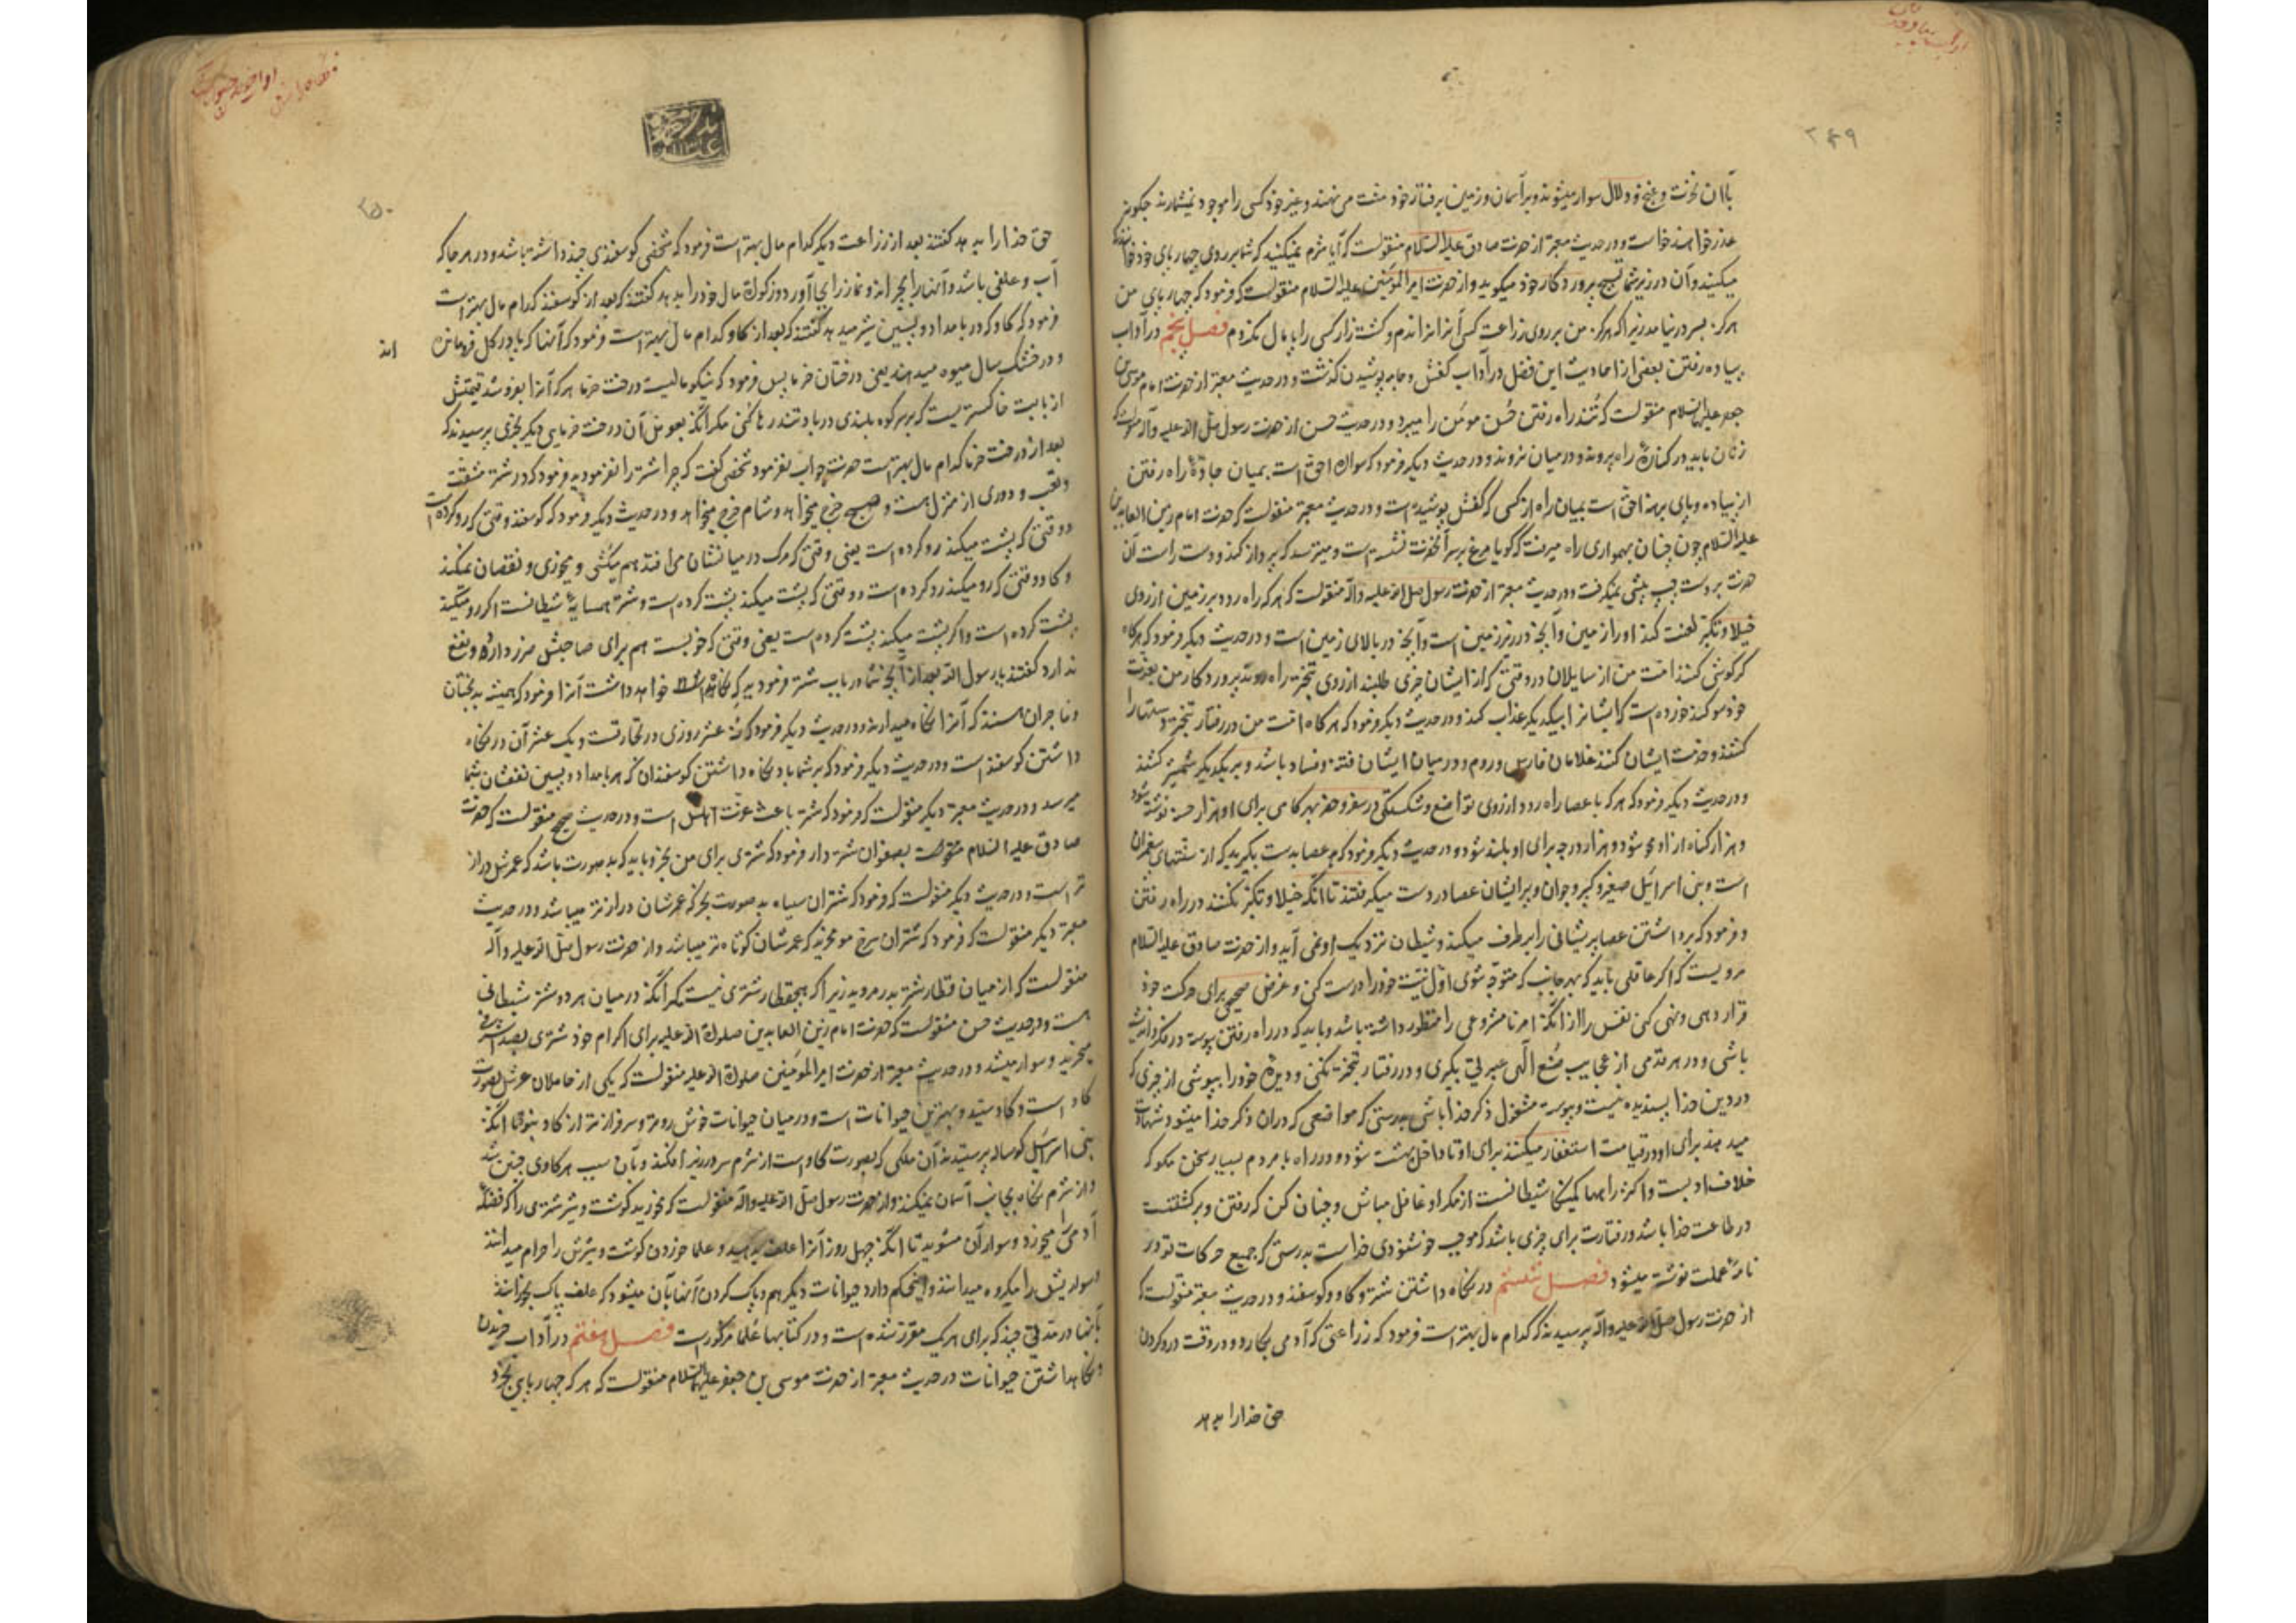 ۲۴۹
باان نخوت و غنج و دلال سوار میشوند و بر آسمان و زمین برفتار خود منت می نهند و غیر خود کسی را موجود نمیشمارند چگونه
عذر خواهند خواست و در حدیث معتبر از حضرت صادق علیه السلام منقولست که آیا شرم نمیکنید که شما بر روی چهارپای خود
میکنید و آن در زیر شما تسبیح پروردگار خود میگوید و از حضرت امیرالمؤمنین علیه السلام منقولست که فرمود که چهارپای من
هرگز بسر در نیامد زیرا که هرگز من بر روی زراعت کسی آنرا نراندم و کشتزار کسی را پامال نکردم فصل پنجم در آداب
پیاده رفتن بعضی از احادیث این فصل در آداب کفش و جامه پوشیدن گذشت و در حدیث معتبر از حضرت امام موسی بن
جعفر علیهما السلام منقولست که تند راه رفتن حُسن مؤمن را میبرد و در حدیث حسن از حضرت رسول صلی الله علیه و آله منقولست که
زنان باید در کناره راه بروند و در میان نروند و در حدیث دیگر فرمود که سواره احق است بمیان جادّه راه رفتن
از پیاده و پای برهنه احق است بمیان راه از کسی که کفش پوشیده است و در حدیث معتبر منقولست که حضرت امام زین العابدین
علیه السلام چون چنان بهمواری راه میرفت که گویا مرغ بر سر آنحضرت نشسته است و میترسد که پرواز کند و دست راست آن
حضرت بر دست چپ پیشی نمیگرفت و در حدیث معتبر از حضرت رسول صلی الله علیه وآله منقولست که هر که راه رود بر زمین از روی
خیلا و تکبّر لعنت کند او را زمین و آنچه در زیر زمین است و آنچه در بالای زمین است و در حدیث دیگر فرمود که هرگاه
کرگوشی کنند امّت من از سایلان در وقتی که از ایشان چیزی طلبند از روی تبختر راه روند پروردگار من بعزت
خود سوگند خورده است که ایشانرا بیکدیگر عذاب کند و در حدیث دیگر فرمود که هرگاه امّت من در رفتار تبختر و دستها را
کشند و خدمت ایشان کنند غلامان فارس و روم و در میان ایشان فتنه و فساد باشد و بر یکدیگر شمشیر کشند
و در حدیث دیگر فرمود که هر که با عصا راه رود از روی تواضع و شکستگی در سفر و حضر بهر گامی برای او هزار حسنه نوشته شود
و هزار گناه از او محو شود و هزار درجه برای او بلند شود و در حدیث دیگر فرمود که عصا بدست بگیرید که از سنّتهای پیغمبران
است و بنی اسرائیل صغیر و کبیر و جوان و پیر ایشان عصا در دست میگرفتند تا آنکه خیلا و تکبّر نکنند در راه رفتن
و فرمود که برداشتن عصا پریشانی را برطرف میکند و شیطان نزدیک او نمی آید و از حضرت صادق علیه السلام
مرویست که اگر عاقلی باید که بهر جانب که متوجّه شوی اول نیّت خود را درست کنی و غرض صحیحی برای حرکت خود
قرار دهی و نهی کنی نفس را از آنکه امر نامشروعی را منظور داشته باشد و باید که در راه رفتن پیوسته در فکر و اندیشه
باشی و در هر قدمی از عجایب صُنع الهی عبرتی بگیری و در رفتار تبختر نکنی و دیده خود را بپوشی از چیزی که
در دین خدا پسندیده نیست و پیوسته مشغول ذکر خدا باشی بدرستی که مواضعی که دران ذکر خدا میشود شهادت
میدهند برای او در قیامت استغفار میکنند برای او تا داخل بهشت شود و در راه با مردم بسیار سخن مگو که
خلاف ادبست و اکثر راهها کمینگاه شیطانست از مکر او غافل مباش و چنان کن که رفتن و برگشتنت
در طاعت خدا باشد و رفتارت برای چیزی باشد که موجب خوشنودی خداست بدرستی که جمیع حرکات تو در
نامۀ عملت نوشته میشود فصل ششم در نگاه داشتن شتر و گاو و گوسفند و در حدیث معتبر منقولست که
از حضرت رسول صلی الله علیه وآله پرسیدند که کدام مال بهتر است فرمود که زراعتی که آدمی بکارد و در وقت درو کردن
حق خدا را بدهد
۲۵۰
حق خدا را بدهد گفتند بعد از زراعت دیگر کدام مال بهتر است فرمود که شخصی گوسفندی چند داشته باشد و در هر جا که
آب و علفی باشد و آنها را بچراند و نماز را بجا آورد و زکوة مال خود را بدهد گفتند که بعد از گوسفند کدام مال بهتر است
فرمود که گاو که در بامداد و پسین شیر میدهد گفتند که بعد از گاو کدام مال بهتر است فرمود که آنها که پا در گل فرو مانده
اند
و در خشک سال میوه میدهند یعنی درختان خرما پس فرمود که نیکو مالیست درخت خرما هر که آنرا بفروشد قیمتش
از بابت خاکستریست که بر سر کوه بلندی در باد تند رها کنی مگر آنکه بعوض آن درخت خرمای دیگر بخری پرسیدند که
بعد از درخت خرما کدام مال بهتر است حضرت جواب نفرمود شخصی گفت که چرا شتر را نفرمودید فرمود که در شتر مشقّت
و تعب و دوری از منزل هست و صبح خرج میخواهد و شام خرج میخواهد و در حدیث دیگر فرمود که گوسفند وقتی که رو کرده است
و وقتی که پشت میکند رو کرده است یعنی وقتی که مرگ در میانشان می افتد هم میکشی و میخوری و نقصان نمیکند
و گاو وقتی که رو میکند رو کرده است و وقتی که پشت میکند پشت کرده است و شتر همسایۀ شیطانست اگر رو میکند
پشت کرده است و اگر پشت میکند پشت کرده است یعنی وقتی که خوبست هم برای صاحبش ضرر دارد و نفع
ندارد گفتند یا رسول الله بعد از آنچه شما در باب شتر فرمودید که نگاه خواهد داشت آنرا فرمود که همیشه بدبختان
و فاجران هستند که آنرا نگاه میدارند و در حدیث دیگر فرمود که نه عشر روزی در تجارتست و یک عشر آن در نگاه
داشتن گوسفند است و در حدیث دیگر فرمود که بر شما باد نگاه داشتن گوسفندان که هر بامداد و پسین نفعشان بشما
میرسد و در حدیث معتبر دیگر منقولست که فرمود که شتر باعث عزّت اهلش است و در حدیث صحیح منقولست که حضرت
صادق علیه السلام بصفوان شتردار فرمود که شتری برای من بخر و باید که بد صورت باشد که عمرش دراز
تر است و در حدیث دیگر منقولست که فرمود که شتران سیاه بد صورت بخر که عمرشان درازتر میباشد و در حدیث
معتبر دیگر منقولست که فرمود که شتران سرخ مو مخرید که عمرشان کوتاه تر میباشد و از حضرت رسول صلی الله علیه و آله
منقولست که از میان قطار شتر بدر مروید زیرا که هیچ قطار شتری نیست مگر آنکه در میان هر دو شتر شیطانی
هست و در حدیث حسن منقولست که حضرت امام زین العابدین صلوات الله علیه برای اکرام خود شتری بصد اشرفی
میخرید و سوار میشد و در حدیث معتبر از حضرت امیرالمؤمنین صلوات الله علیه منقولست که یکی از حاملان عرش بصورت
گاو است و گاو سیّد و بهترین حیوانات است و در میان حیوانات خوش روتر و سرفرازتر از گاو نبود تا آنکه
بنی اسرائیل گوساله پرستیدند آن ملکی که بصورت گاو است از شرم سر در زیر افکند و بآن سبب هر گاوی چنین شد
و از شرم نگاه بجانب آسمان نمیکند و از حضرت رسول صلی الله علیه وآله منقولست که مخورید گوشت و شیر شتری را که فضلۀ
آدمی را میخورد و سوار آن مشوید تا آنکه چهل روز آنرا علف بدهید و علما خوردن گوشت و شیرش را حرام میدانند
و سواریش را مکروه میدانند و این حکم دارد حیوانات دیگر هم و پاک کردن آنها بآن میشود که علف پاک بخورانند
بآنها در مدّتی چند که برای هر یک مقرّر شده است و در کتابهای علما مذکور است فصل هفتم در آداب خریدن
و نگاهداشتن حیوانات در حدیث معتبر از حضرت موسی بن جعفر علیهما السلام منقولست که هر که چهارپایی بخرد